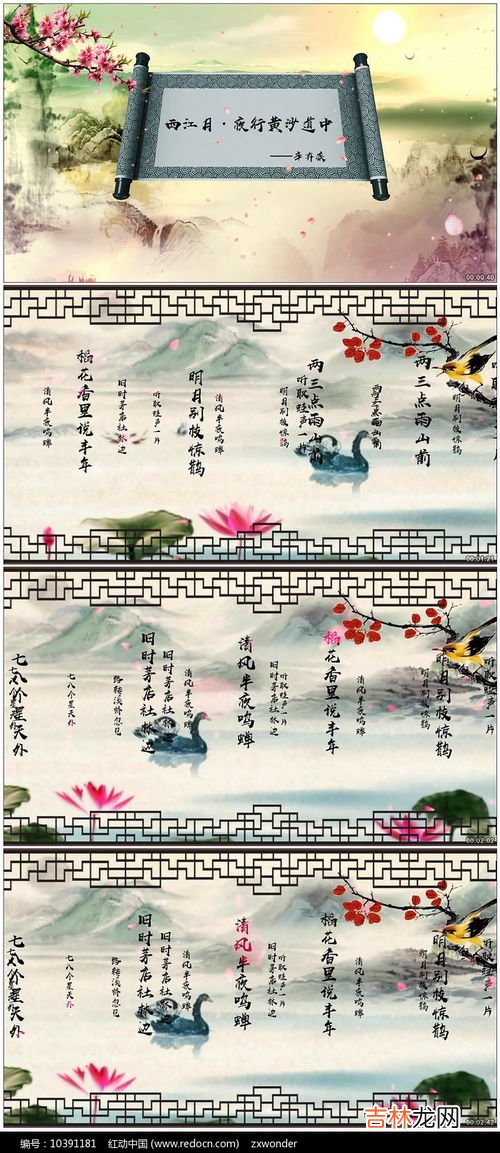 西江月·夜行黄沙道中
——辛弃疾
00:00:40
稻花香里说丰年
清风半夜鸣蝉
旧时茅店社林边
听取蛙声一片
明月别枝惊鹊
清风半夜鸣蝉
明月别枝惊鹊
听取蛙声一片
两三点雨山前
两三点雨山前
两三点雨山前
明月别枝惊鹊
00:01:21
七八个星天外
七八个星天外
路转溪桥忽见
旧时茅店社林边
旧时茅店社林边
清风半夜鸣蝉
清风半夜鸣蝉
旧时茅店社林边
听取蛙声一片
稻花香里说丰年
清风半夜鸣蝉
明月别枝惊鹊
明月别枝惊鹊
听取蛙声一片
00:02:02
七八个星天外
七八个星天外
路转溪桥忽见
旧时茅店社林边
旧时茅店社林边
清风半夜鸣蝉
清风半夜鸣蝉
旧时茅店社林边
听取蛙声一片
稻花香里说丰年
清风半夜鸣蝉
明月别枝惊鹊
明月别枝惊鹊
听取蛙声一片
00:02:42
吉林龙网
编号：10391181 红动中国 (www.redocn.com) zxwonder